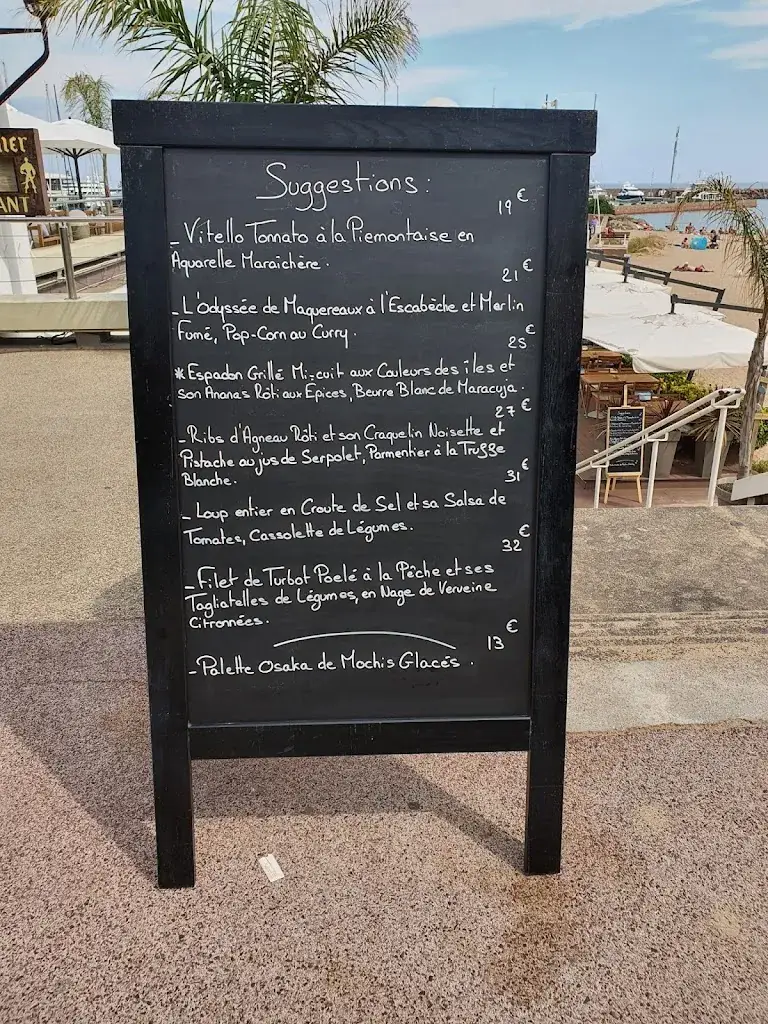 Suggestions:
19€
- Vitello Tonnato à la Piemontaise en
Aquarelle Maraîchère.
21€
- L'Odyssée de Maquereaux à l'Escabèche et Merlin
Fumé, Pop-Corn au Curry.
25€
* Espadon Grillé Mi-cuit aux Couleurs des îles et
son Ananas Rôti aux Épices, Beurre Blanc de Maracuja.
27€
- Ribs d'Agneau Rôti et son Craquelin Noisette et
Pistache au jus de Serpolet, Parmentier à la Truffe
Blanche.
31€
- Loup entier en Croute de Sel et sa Salsa de
Tomates, Cassolette de Légumes.
32€
- Filet de Turbot Poelé à la Pêche et ses
Tagliatelles de Légumes, en Nage de Verveine
Citronnées.
13€
- Palette Osaka de Mochis Glacés.